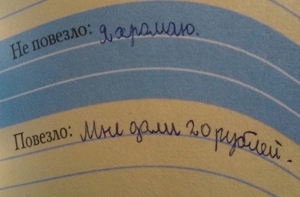 Не повезло: Я хромаю.
Повезло: Мне дали 20 рублей.